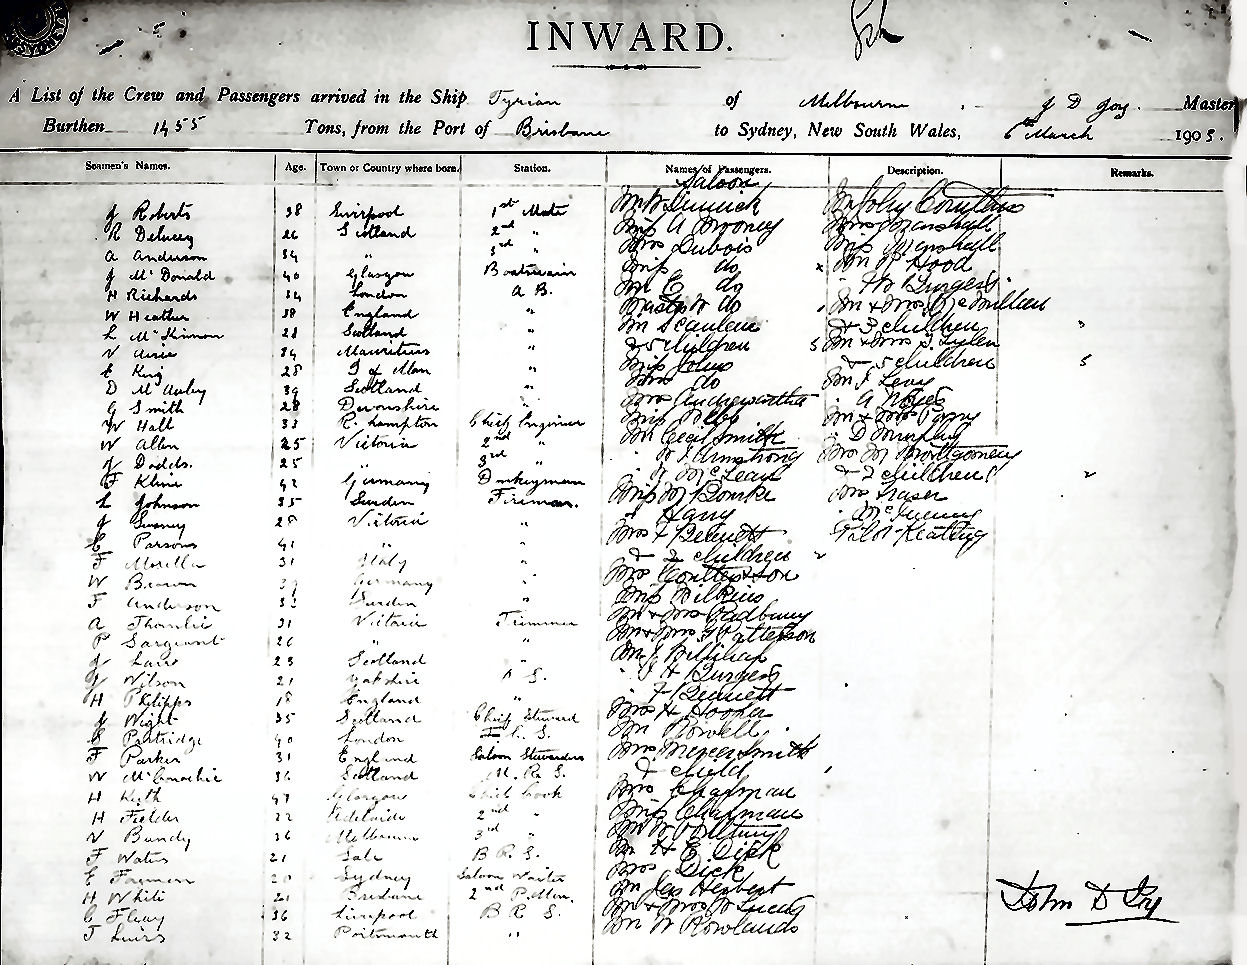 INWARD.
A List of the Crew and Passengers arrived in the Ship Tyrian of Melbourne, J D Joy. Master
Burthen 1455 Tons, from the Port of Brisbane to Sydney, New South Wales, 6th March 1905.
Seamen's Names. Age. Town or Country where born. Station. Names of Passengers. Description. Remarks.
Saloon
J Roberts 38 Liverpool 1st Mate
R Delacey 26 Scotland 2nd "
A Anderson 34 " 3rd "
J McDonald 40 Glasgow Boatswain
H Richards 34 London A B.
W Heather 38 England "
L McKinnon 28 Scotland "
34 Mauritius "
E King 25 I of Man "
D McAuley 39 Scotland "
G Smith 28 Devonshire "
W Hall 33 R. hampton Chief Engineer
W Allen 25 Victoria 2nd "
J Dodds. 25 " 3rd "
F Kline 42 Germany Donkeyman
L Johnson 35 Sweden Fireman.
J 28 Victoria "
E Parsons 41 " "
F Morella 31 Italy "
W Brown 39 Germany "
F Anderson 32 Sweden "
A 31 Victoria Trimmer
P Sargeant 26 " "
J 23 Scotland "
J Wilson 21 Yorkshire S.
H Philipps 18 England "
J Wight 35 Scotland Chief Steward
Partridge 40 London S.
F Parker 31 England Saloon Stewardess
W McConachie 36 Scotland M. R. S.
H Keith 47 Glasgow Chief Cook
H Fielder 22 Adelaide 2nd "
V Bundy 36 Melbourne 3rd "
F Waters 21 Sale B R S.
E 20 Sydney Saloon Waiter
H White 21 Brisbane 2nd
C Fleay 36 Liverpool B R S.
T 32 Portsmouth "
Mr W Dimmick
Miss A Mooney
Mrs Dubois
Miss do
Mr E do
Master W do
Mr Scanlen
& 5 children 5
Miss Johns
Mrs do
Mrs Andrewartha
Miss Webb
Mr Cecil Smith
" W J Armstrong
" McLean
Miss M Bourke
" Harry
Mrs F Bennett
& 2 children 2
Mrs Coulter & son
Miss Wilkins
Mr & Mrs Padbury
Mr & Mrs Patterson
Mr J
" H Burgess
" F Bennett
Mrs H Hooper
Mr Rowell
Mrs Mercer Smith
& child
Mrs Chapman
Miss Chapman
Mr W
Mr H E Dick
Mrs Dick
Mr Jas Herbert
Mr & Mrs W Lucas
Mr W Rowlands
Mr John Carruthers
Mrs Marshall
Miss Marshall
Mr W Hood
" Burgess
Mr & Mrs McMillan
& 3 children 3
Mr & Mrs J
& 5 children 5
Mr J Levy
" A Noyes
Mr & Mrs Parry
" D Murphy
Mrs M Montgomery
& 2 children 2
Mrs Fraser
"
Pilot Keating
John D Joy